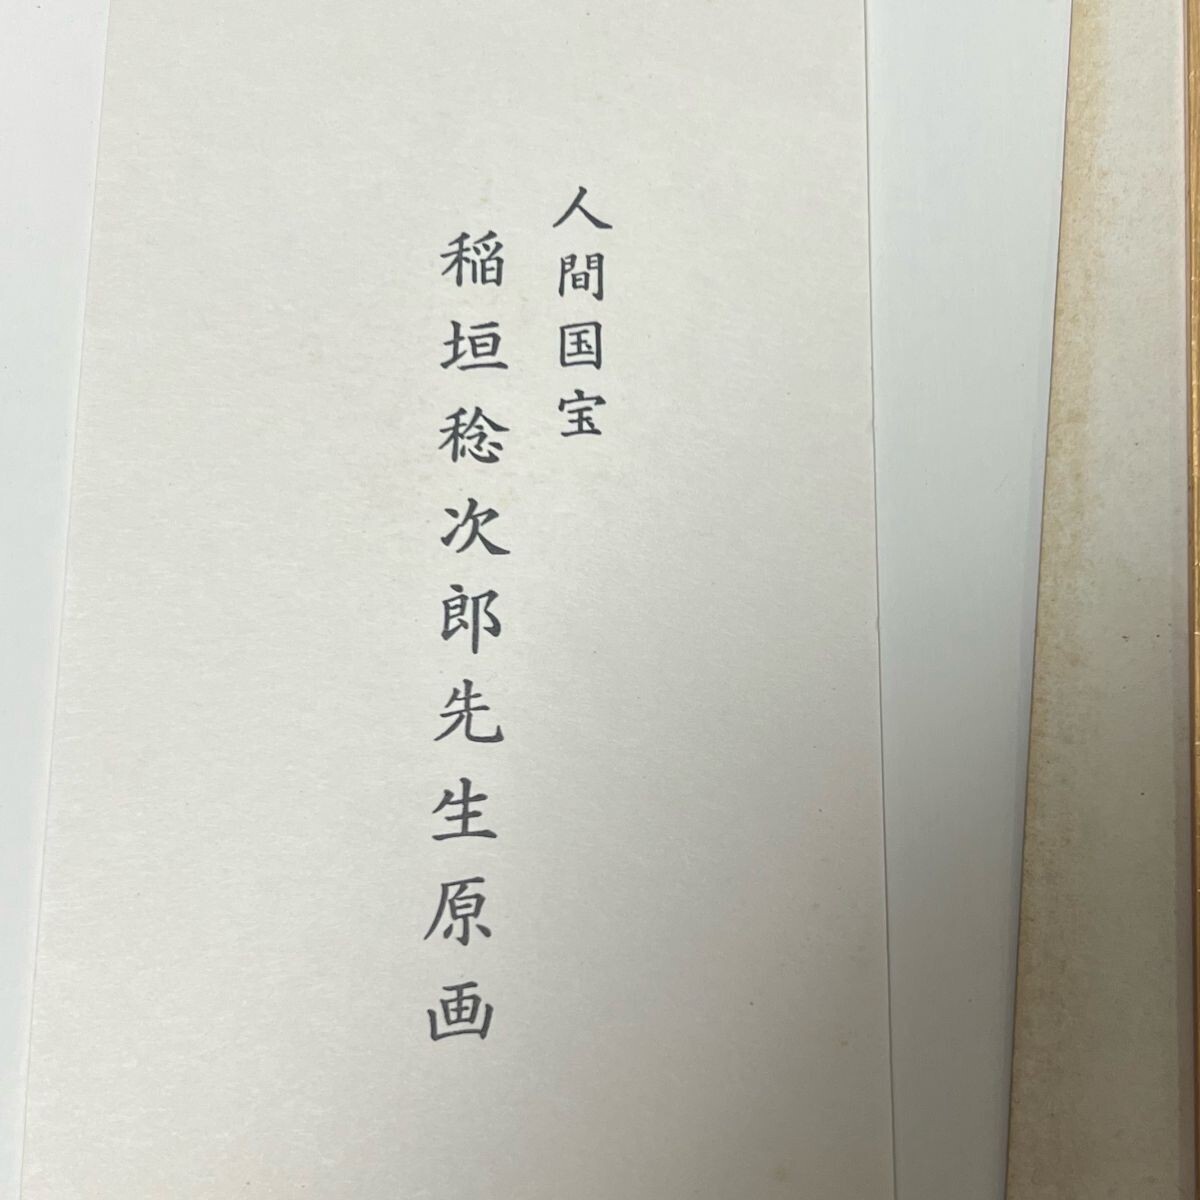 人間国宝
稲垣稔次郎先生原画